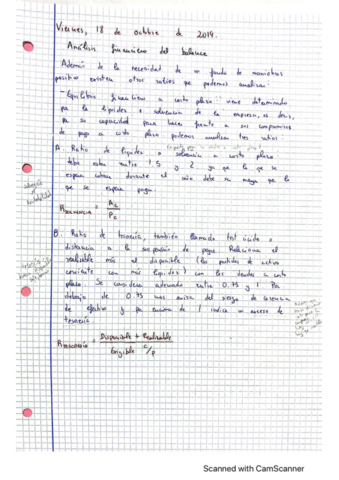 Viernes, 18 de octubre de 2019.
Análisis financiero del balance
Además de la necesidad de un fondo de maniobras
positivo existen otros ratios que podemos analizar:
- Equilibrio financiero a corto plazo: viene determinado
por la liquidez o solvencia de la empresa, es decir,
por su capacidad para hacer frente a sus compromisos
de pago a corto plazo podemos analizar tres ratios:
A. Ratio de liquidez o solvencia a corto plazo
debe estar entre 1.5 y 2 ya que lo que se
espera cobrar durante el año debe ser mayor que lo
que se espera pagar.
R
B. Ratio de tesorería, también llamado test ácido o
distancia a la suspensión de pagos. Relaciona el
realizable más el disponible (las partidas de activo
corriente con más liquidez) con las deudas a corto
plazo. Se considera adecuado entre 0.75 y 1. Por
debajo de 0.75 nos avisa del riesgo de carencia
de efectivo y por encima de 1 indica un exceso de
tesorería.
RTESORERÍA = Disponible + Realizable
Exigible c/p
Scanned with CamScanner